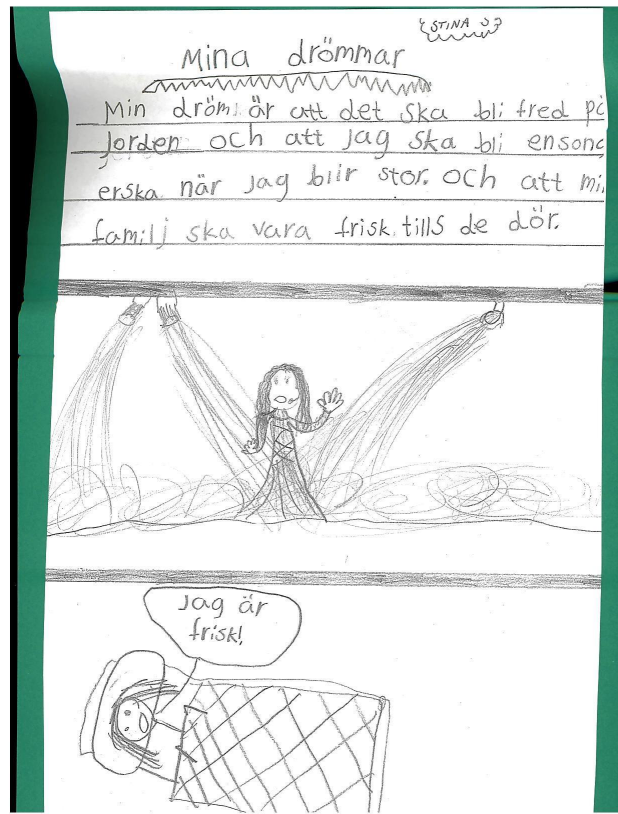 STINA S7
Mina drömmar
Min dröm är att det ska bli fred på
Jorden och att Jag ska bli ensong
erska när Jag blir stor. Och att mi
familj ska vara frisk tills de dör.
Jag är
frisk!